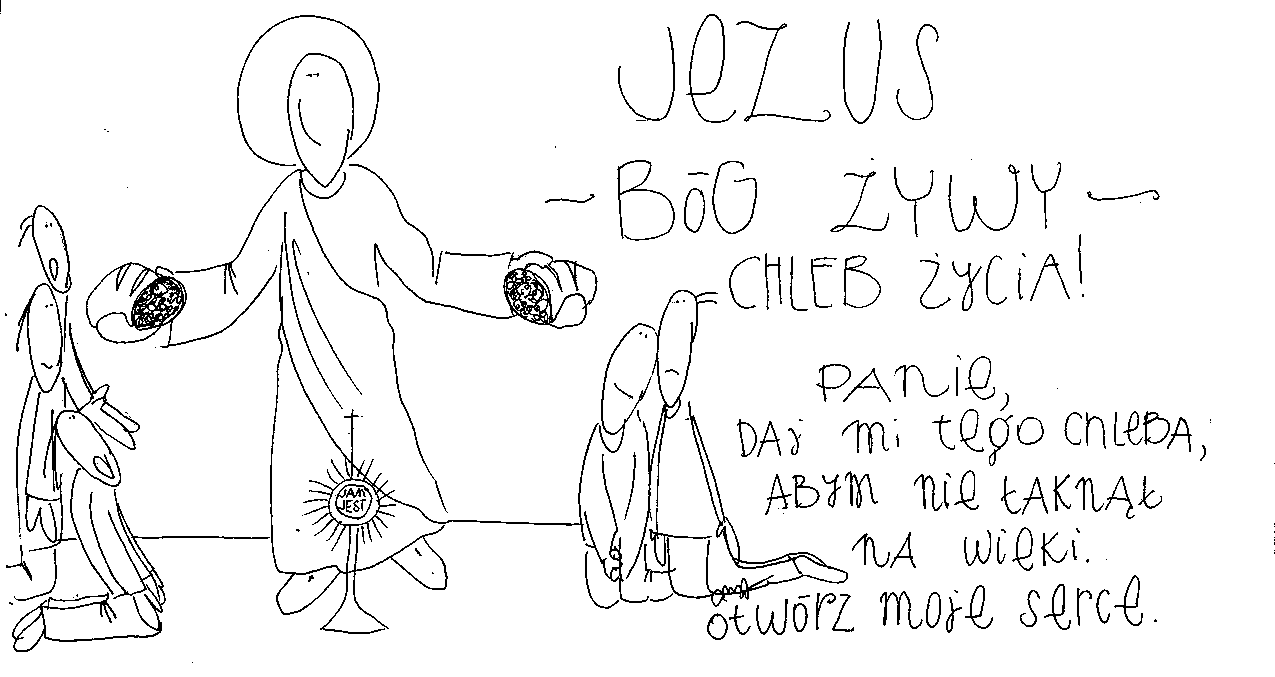 JEZUS
~ BÓG ŻYWY ~
CHLEB ŻYCIA!
PANIE,
DAJ mi tego CHLEBA,
ABYM nie ŁAKNĄŁ
NA WIEKI.
OTWÓRZ moje serce.
JAM
JEST